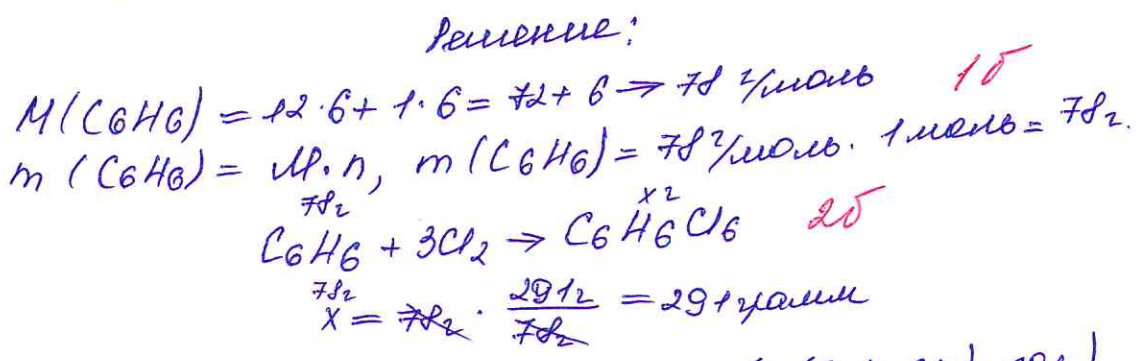 Решение:
M(C6H6) = 12·6+ 1·6= 72+ 6 → 78 г/моль 1б
m (C6H6) = M·n, m(C6H6) = 78 г/моль · 1 моль = 78г.
78г x г
C6H6 + 3Cl2 → C6H6Cl6 2б
78г
x = 78г · 291г/78г = 291 грамм